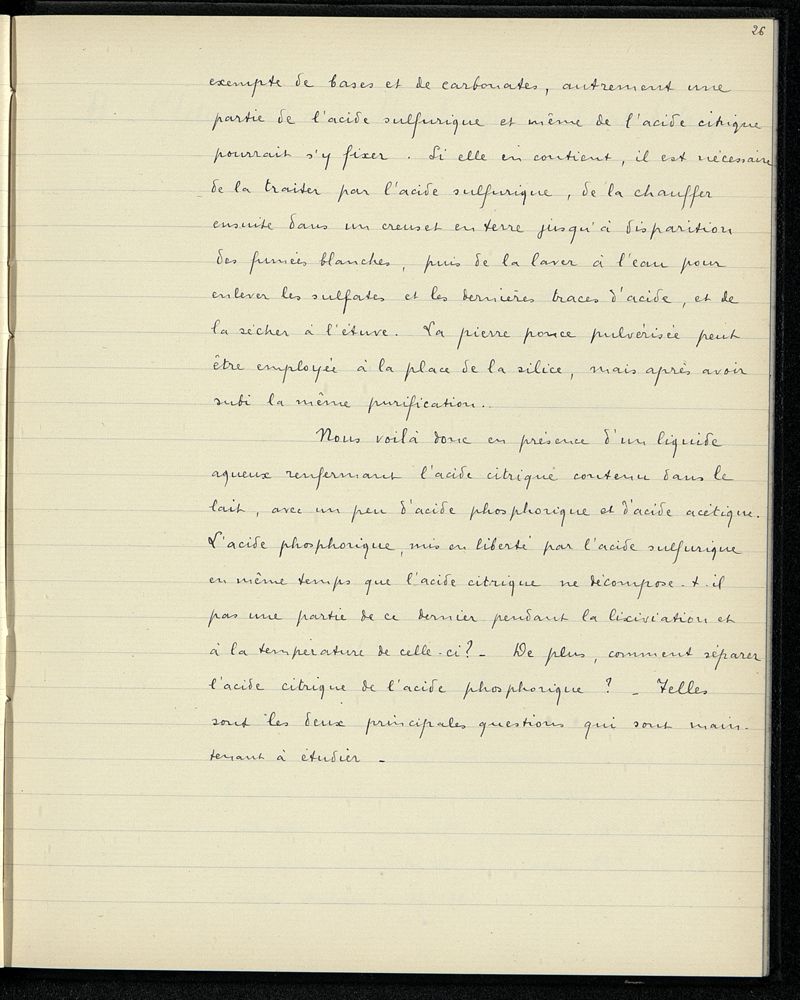 26
exempte de bases et de carbonates, autrement une
partie de l'acide sulfurique et même de l'acide citrique
pourrait s'y fixer. Si elle en contient, il est nécessaire
de la traiter par l'acide sulfurique, de la chauffer
ensuite dans un creuset en terre jusqu'à disparition
des fumées blanches, puis de la laver à l'eau pour
enlever les sulfates et les dernières traces d'acide, et de
la sécher à l'étuve. La pierre ponce pulvérisée peut
être employée à la place de la silice, mais après avoir
subi la même purification.
Nous voilà donc en présence d'un liquide
aqueux renfermant l'acide citrique contenu dans le
lait, avec un peu d'acide phosphorique et d'acide acétique.
L'acide phosphorique, mis en liberté par l'acide sulfurique
en même temps que l'acide citrique ne décompose-t-il
pas une partie de ce dernier pendant la lixiviation et
à la température de celle-ci? - De plus, comment séparer
l'acide citrique de l'acide phosphorique ? - Telles
sont les deux principales questions qui sont main-
tenant à étudier -